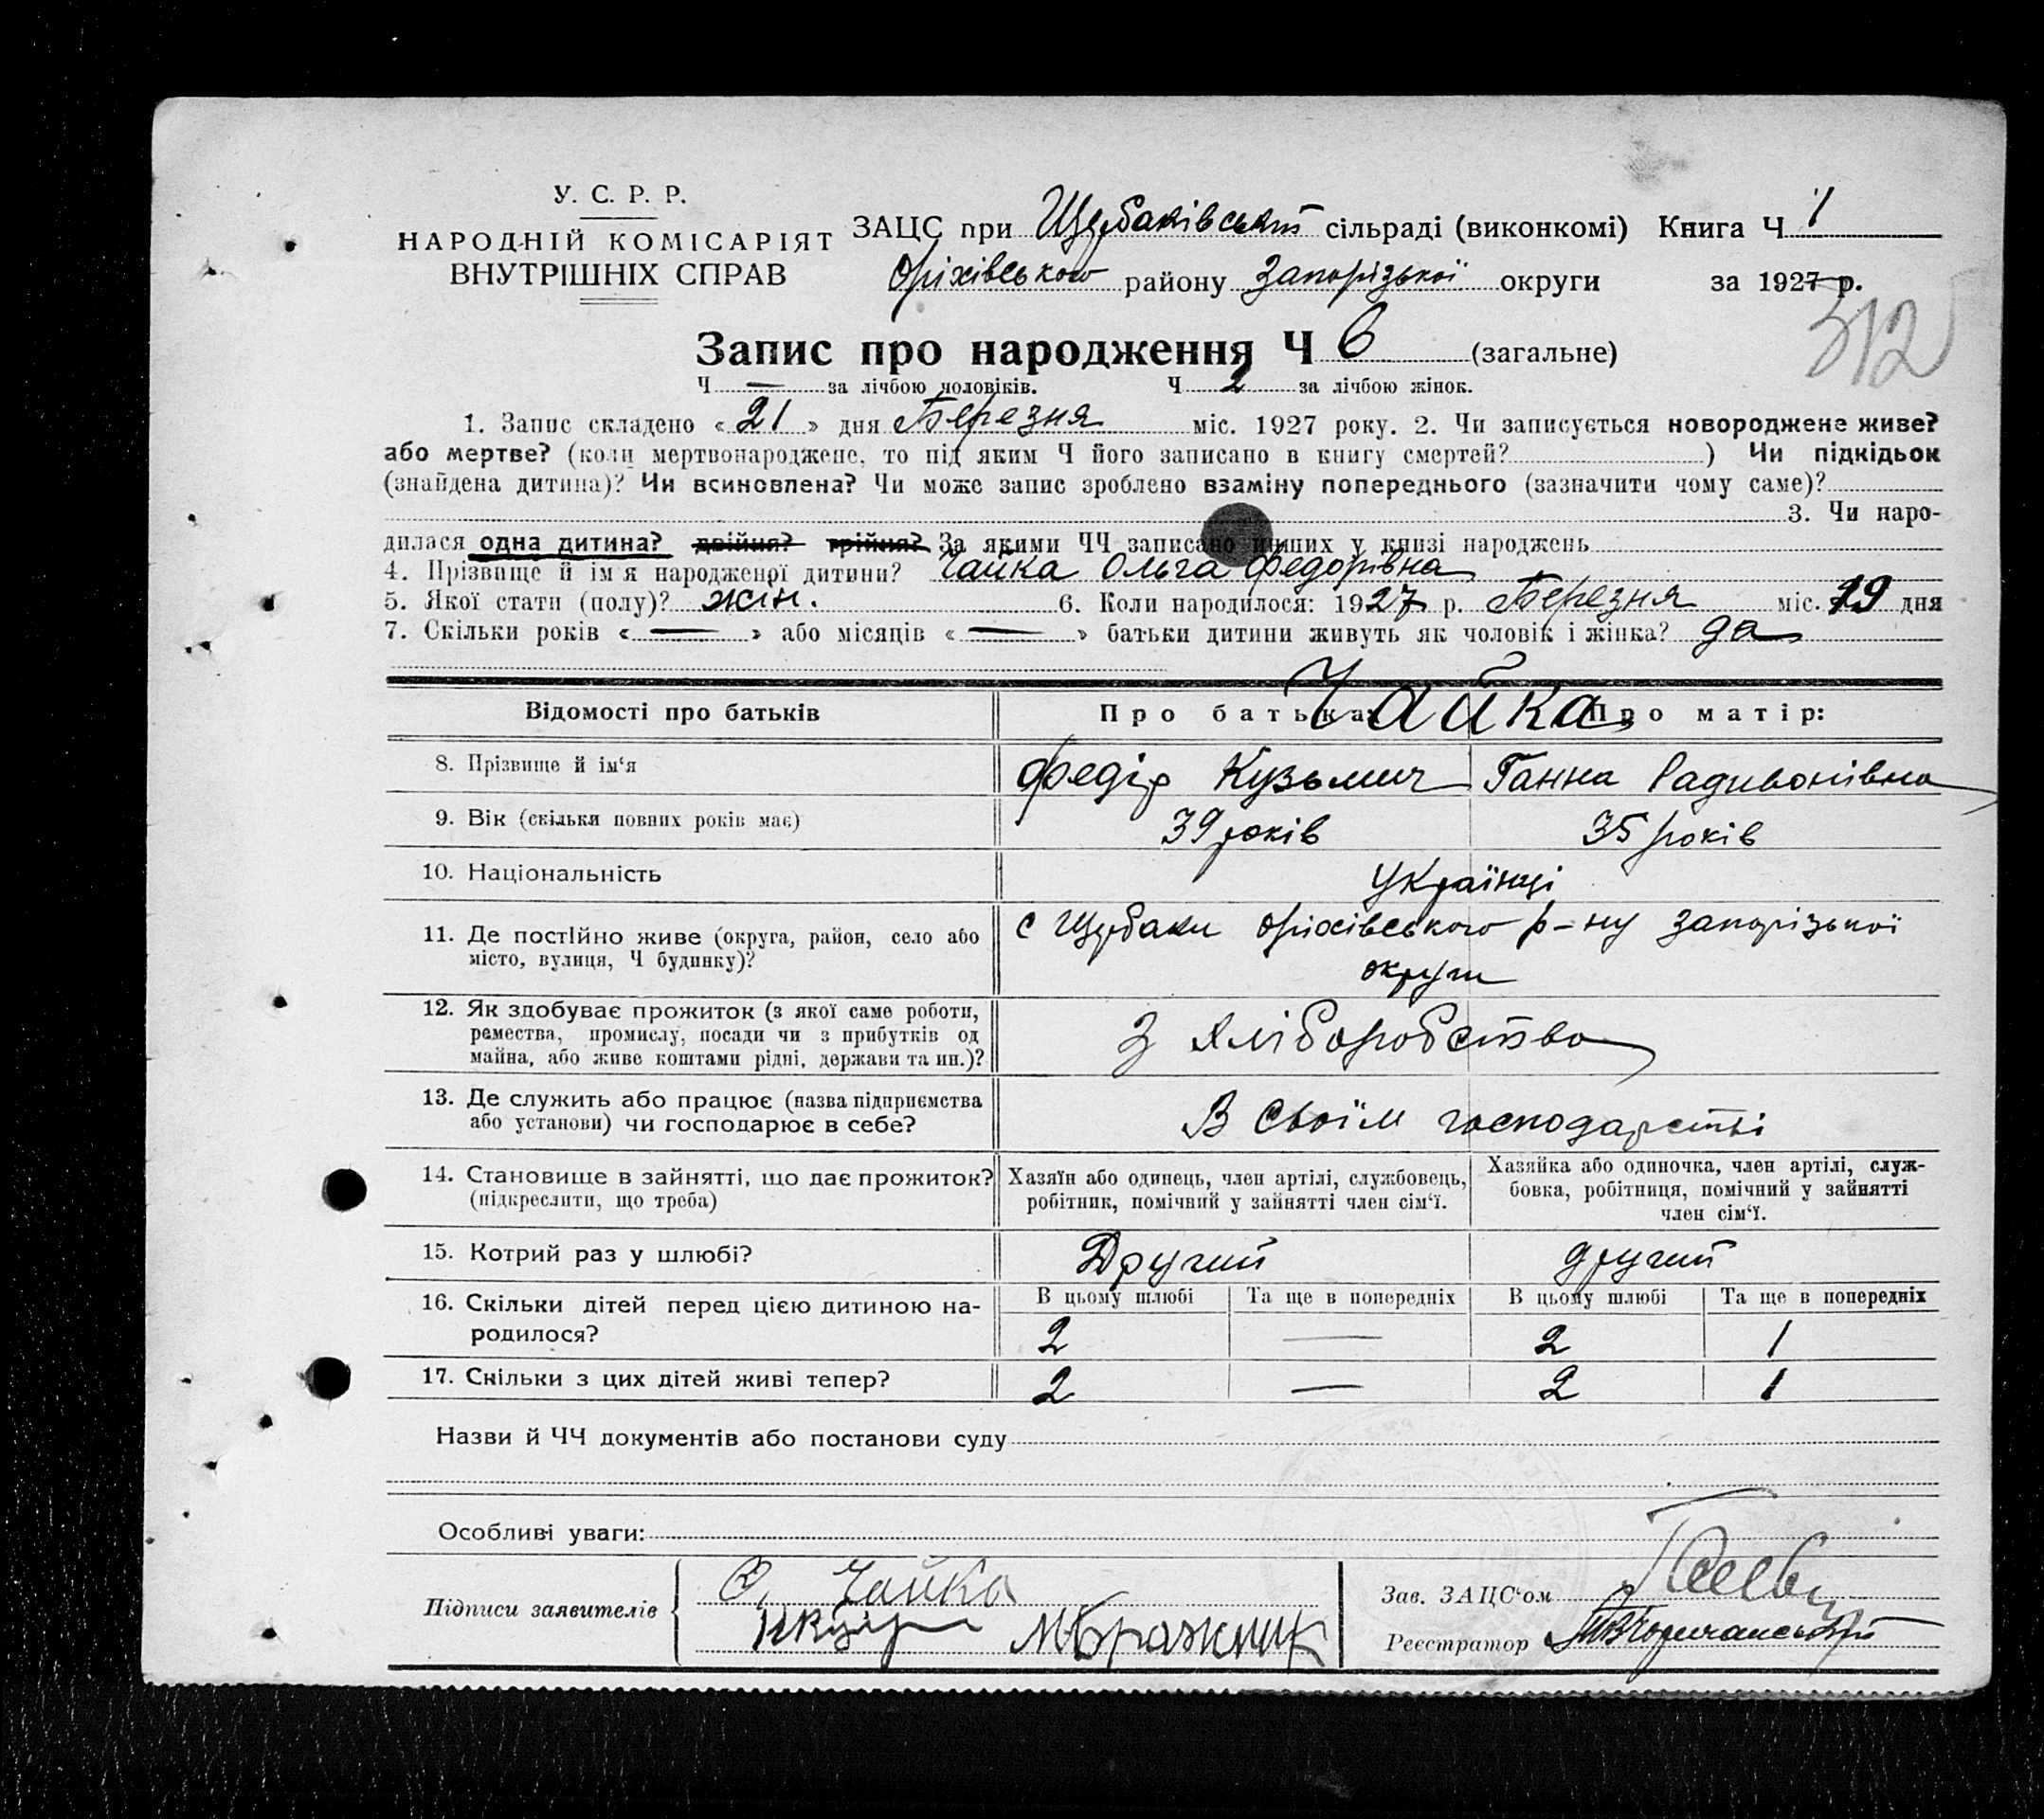 У. С. Р. Р.
НАРОДНІЙ КОМІСАРІЯТ
ВНУТРІШНІХ СПРАВ
ЗАЦС при Щербаківській сільраді (виконкомі) Книга Ч 1
Оріхівського району Запорізької округи за 1927 р.
312
Запис про народження Ч 6 (загальне)
Ч — за лічбою чоловіків. Ч 2 за лічбою жінок.
1. Запис складено « 21 » дня Березня міс. 1927 року. 2. Чи записується новороджене живе?
або мертве? (коли мертвонароджене, то під яким Ч його записано в книгу смертей? ) Чи підкідьок
(знайдена дитина)? Чи всиновлена? Чи може запис зроблено взаміну попереднього (зазначити чому саме)?
3. Чи наро-
дилася одна дитина? двійня? трійня? За якими ЧЧ записано инших у книзі народжень
4. Прізвище й ім'я народженої дитини? Чайка Ольга Федорівна
5. Якої стати (полу)? жін. 6. Коли народилося: 1927 р. Березня міс. 19 дня
7. Скільки років « — » або місяців « — » батьки дитини живуть як чоловік і жінка? да
Відомості про батьків Про батька: Про матір:
Чайка
8. Прізвище й ім'я Федір Кузьмич Ганна Радивонівна
9. Вік (скільки повних років має) 39 років 35 років
10. Національність Українці
11. Де постійно живе (округа, район, село або
місто, вулиця, Ч будинку)?
с Щербаки Оріхівського р-ну Запорізької
округи
12. Як здобуває прожиток (з якої саме роботи,
ремества, промислу, посади чи з прибутків од
майна, або живе коштами рідні, держави та ин.)?
З Хліборобства
13. Де служить або працює (назва підприємства
або установи) чи господарює в себе?
В своїм господарстві
14. Становище в зайнятті, що дає прожиток?
(підкреслити, що треба)
Хазяїн або одинець, член артілі, службовець,
робітник, помічний у зайнятті член сім'ї.
Хазяйка або одиночка, член артілі, служ-
бовка, робітниця, помічний у зайнятті
член сім'ї.
15. Котрий раз у шлюбі? Другий другий
16. Скільки дітей перед цією дитиною на-
родилося?
В цьому шлюбі Та ще в попередніх В цьому шлюбі Та ще в попередніх
2 — 2 1
17. Скільки з цих дітей живі тепер? 2 — 2 1
Назви й ЧЧ документів або постанови суду
Особливі уваги:
Підписи заявителів
Чайка
М Бражник
Зав. ЗАЦС'ом
Реєстратор